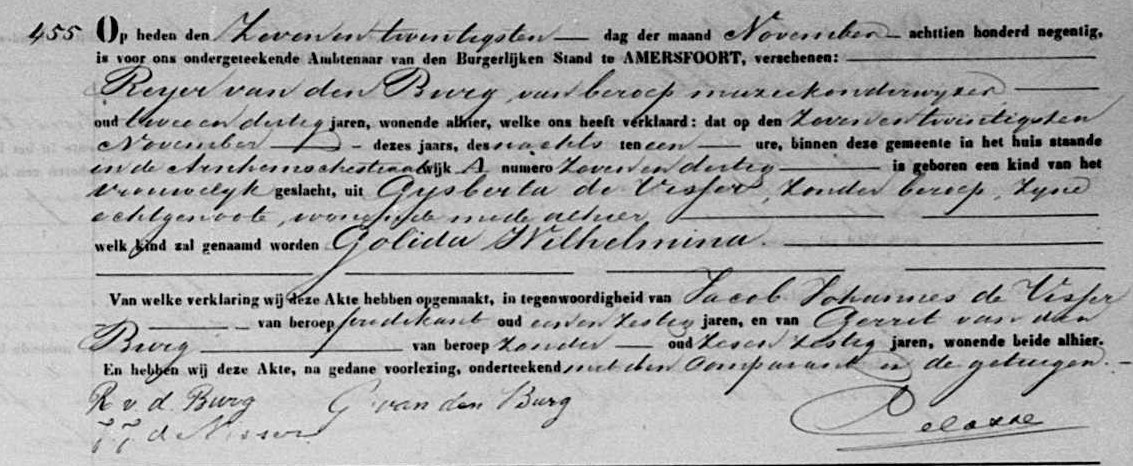 455 Op heden den Zeven en twintigsten dag der maand November achttien honderd negentig,
is voor ons ondergeteekende Ambtenaar van den Burgerlijken Stand te AMERSFOORT, verschenen:
Reyer van den Burg, van beroep muziekonderwyzer,
oud twee en dertig jaren, wonende alhier, welke ons heeft verklaard: dat op den Zeven en twintigsten
November dezes jaars, des nachts ten een ure, binnen deze gemeente in het huis staande
in de Arnhemschestraat wijk A numero Zeven en dertig is geboren een kind van het
vrouwelyk geslacht, uit Gysberta de Visser, zonder beroep, zyne
echtgenoote, wonende mede alhier,
welk kind zal genaamd worden Golida Wilhelmina.
Van welke verklaring wij deze Akte hebben opgemaakt, in tegenwoordigheid van Jacob Johannes de Visser
van beroep predikant oud een en zestig jaren, en van Gerret van den
Burg van beroep zonder oud zes en zestig jaren, wonende beide alhier.
En hebben wij deze Akte, na gedane voorlezing, onderteekend met den Comparant en de getuigen.
R. v. d. Burg G van den Burg
J J de Visser